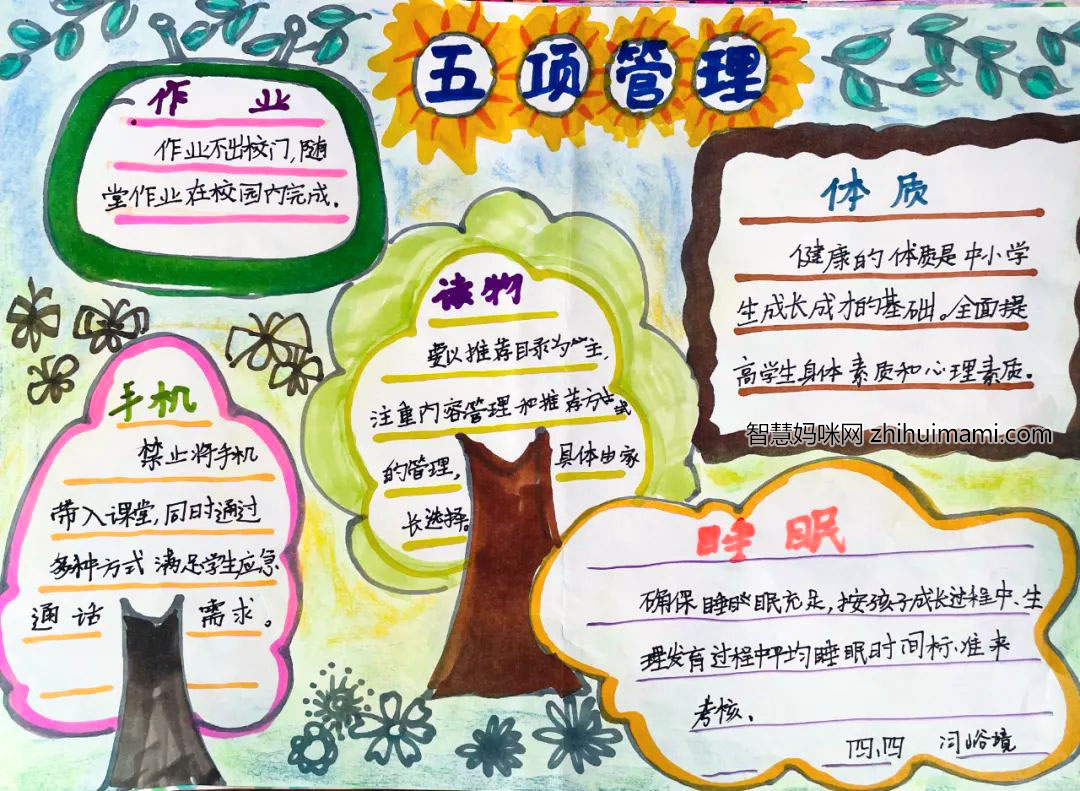 五项管理
作业
作业不出校门,随
堂作业在校园内完成。
体质
健康的体质是中小学
生成长成才的基础。全面提
高学生身体素质和心理素质。
智慧妈咪网 zhihuimami.com
读物
要以推荐目录为主,
注重内容管理和推荐方式
的管理,具体由家
长选择。
手机
禁止将手机
带入课堂,同时通过
多种方式满足学生应急
通话需求。
睡眠
确保睡眠充足,按孩子成长过程中、生
理发育过程中平均睡眠时间标准来
考核、
四、四